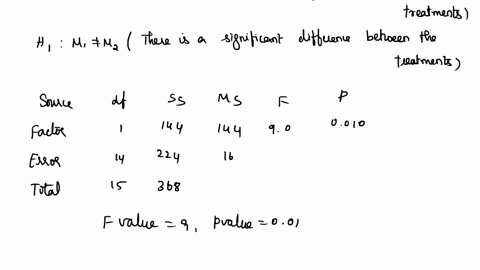 treatments)
H₁ : M₁ ≠ M₂ ( There is a significant difference between the
treatments)
Source df SS MS F P
Factor 1 144 144 9.0 0.010
Error 14 224 16
Total 15 368
F value = 9, pvalue = 0.01